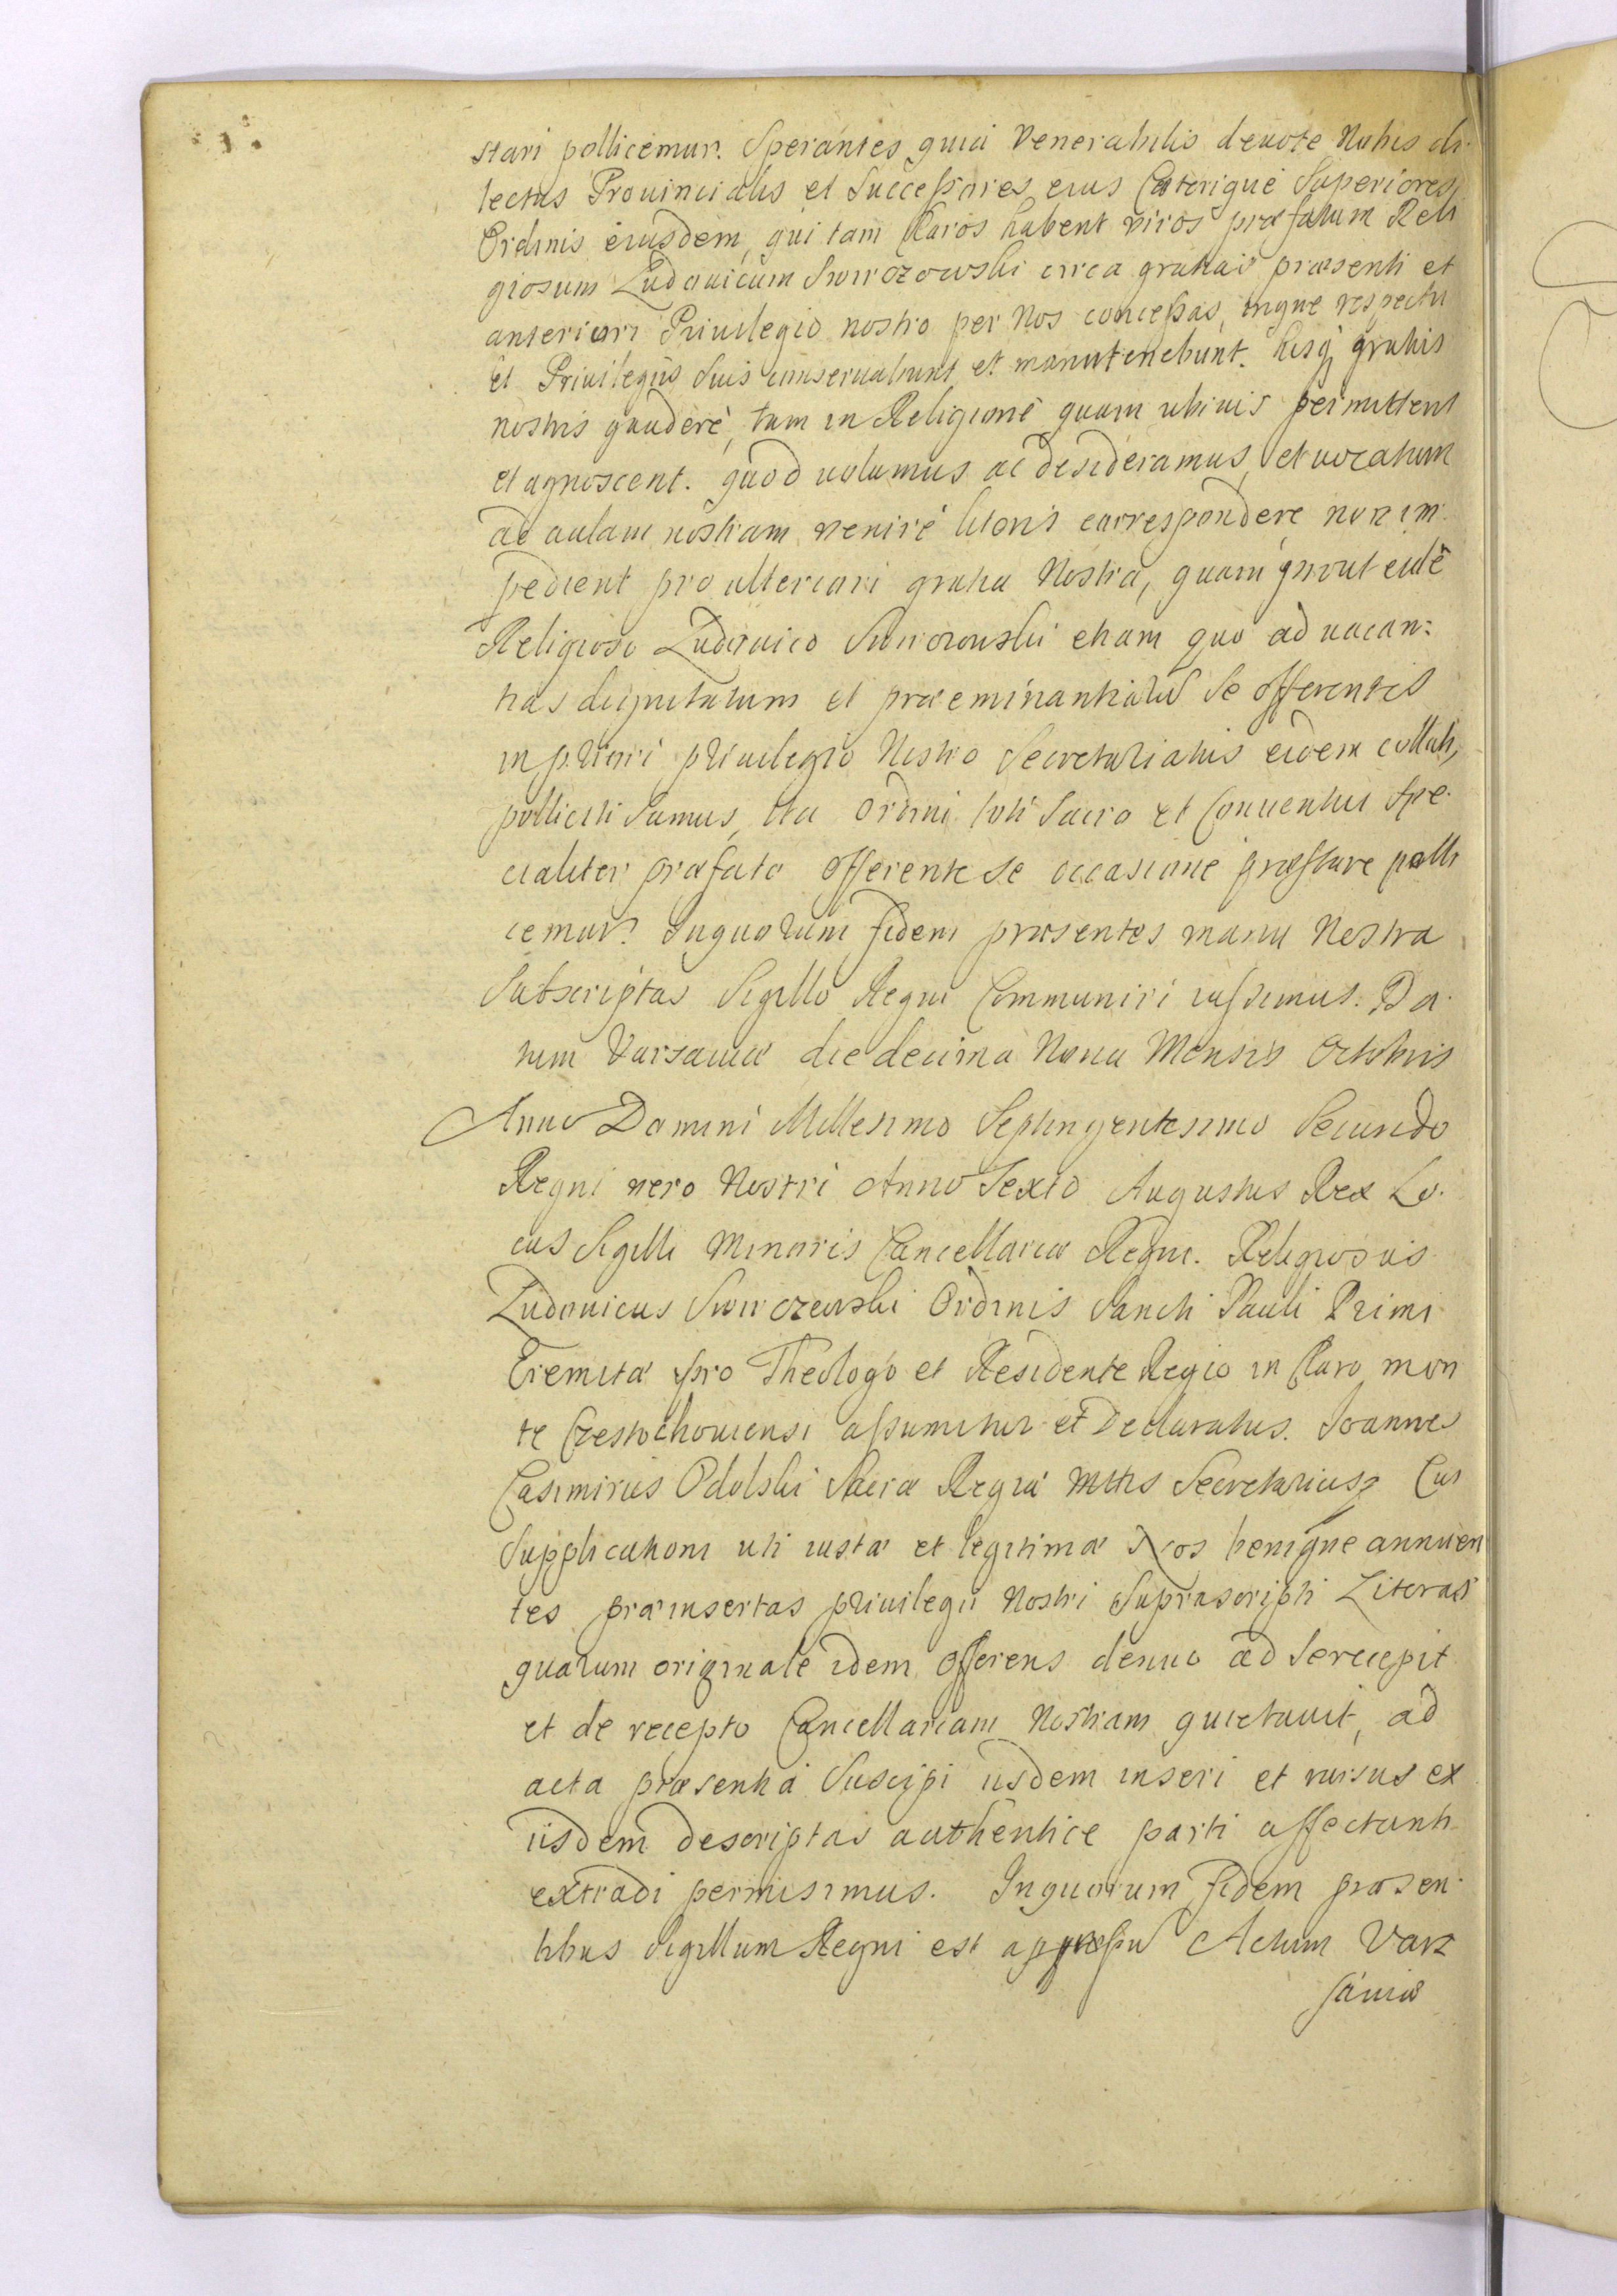 stari pollicemur. Sperantes quia Venerabilis deuote Nobis di-
lectus Prouincialis et Successores eius Caeterique Superiores
Ordinis eiusdem, qui tam Claros habent viros praefatum Reli
giosum Ludouicum Swirczowski circa gratias praesenti et
anteriori Priuilegio nostro per Nos concessas, inque respectu
et Priuilegijs Suis conseruabunt et manutenebunt. hisq gratijs
nostris gaudere, tam in Religione quam ubiuis permittent
et agnoscent. quod uolumus ac desideramus, et uocatum
ad aulam nostram venire literis correspondere non im-
pedient pro ulteriori gratia Nostra, quam prout eidē
Religioso Ludouico Swirczowski etiam quo ad uacan:
tias dignitatum et praeeminantiarū se offerentes
in priori priuilegio Nostro Secretariatus eidem collati,
polliciti Sumus, ita Ordini toti Sacro et Conuentui Spe-
cialiter praefato offerente se occasione praestare polli
cemur. Inquorum fidem praesentes manu Nostra
Subscriptas Sigillo Regni Communiri iussimus. Da-
tum Varsauiae die decima Nona Mensis Octobris
Anno Domini Millesimo Septingentesimo Secundo
Regni vero Nostri Anno Sexto Augustus Rex Lo-
cus Sigilli Minoris Cancellariae Regni. Religiosus
Ludouicus Swirczewski Ordinis Sancti Pauli Primi
Eremitae pro Theologo et Residente Regio in Claro mon
te Czestochouiensi assumitur et Declaratus. Joannes
Casimirus Odolski Sacrae Regiae Mttis Secretarius. Cui
Supplicationi uti iustae et legitimae Nos benigne annuen
tes praeinsertas priuilegii Nostri Suprascripti Literas
quarum originale idem offerens denuo ad Se recepit
et de recepto Cancellariam Nostram quietauit, ad
acta praesentia Suscipi iisdem inseri et rursus ex
iisdem descriptas authentice parti affectanti
extradi permisimus. Inquorum fidem praesen-
tibus Sigillum Regni est appressū Actum Var
sauiae